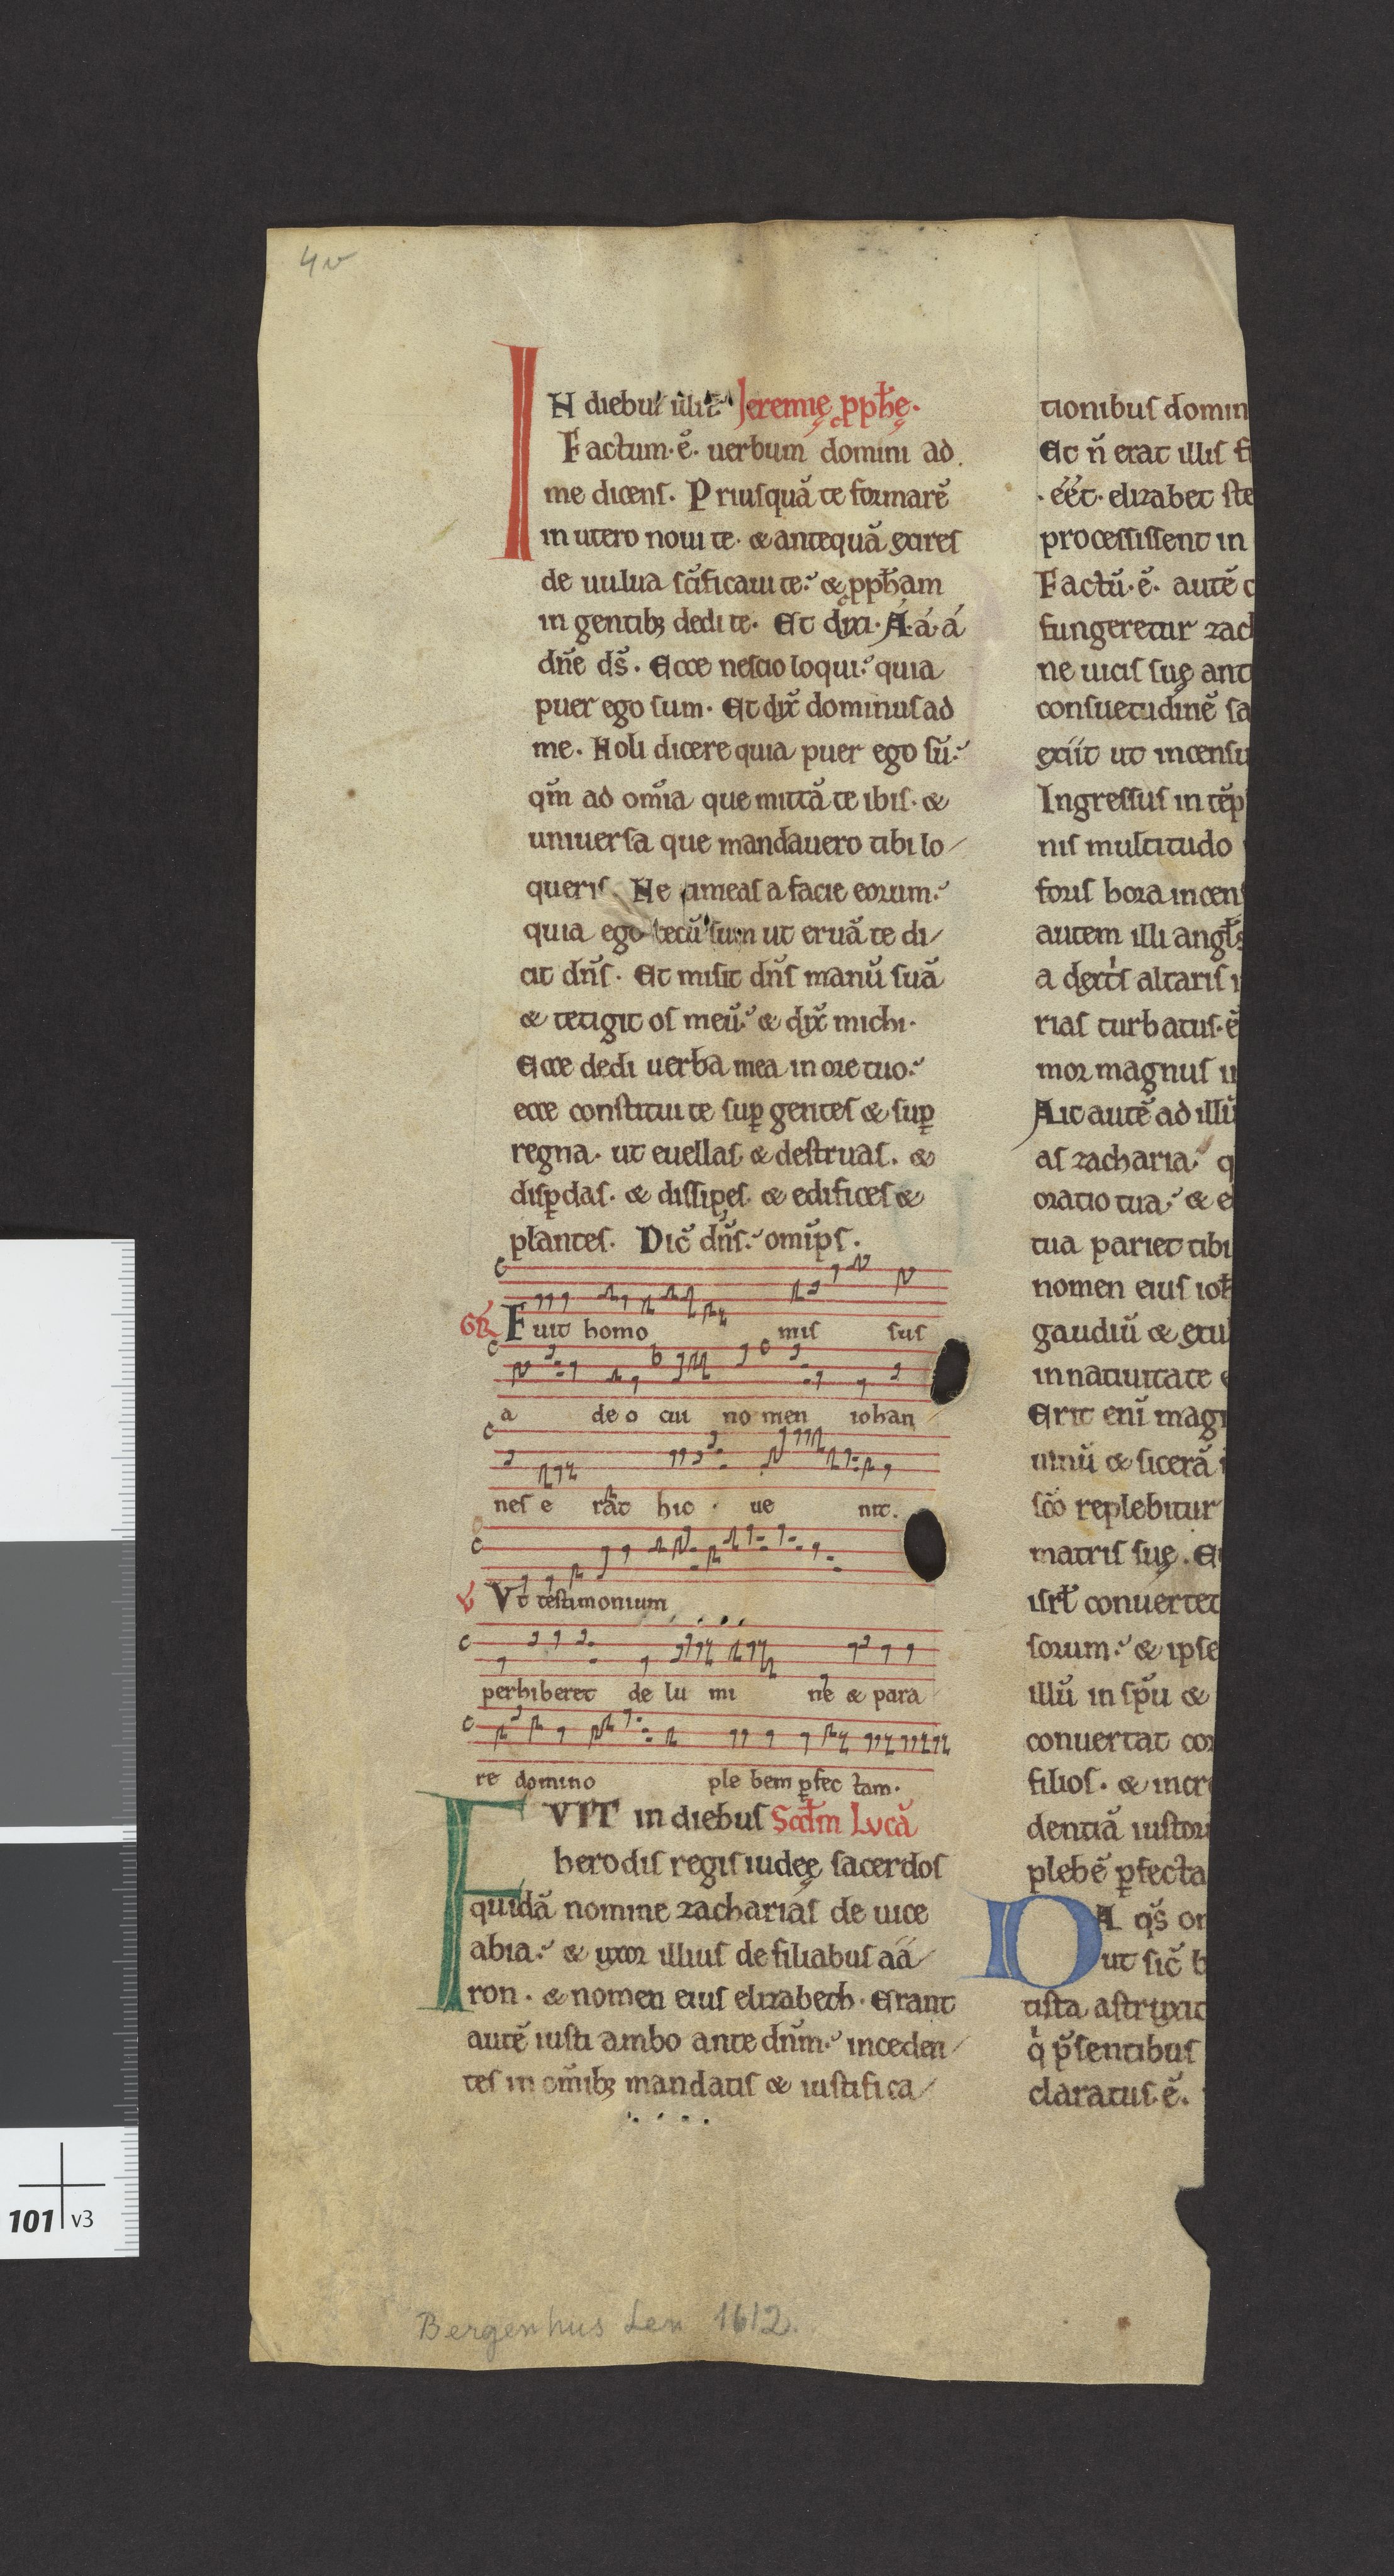 4v
IN diebus illis Jeremię pph̄ę.
Factum·ē· uerbum domini ad
me dicens. Priusquā te formarē
in utero noui te· & antequā exires
de uulua sc̄ificaui te: & pph̄am
in gentib; dedi te· Et dixi· Á·á·á
dn̄e ds̄. Ecce nescio loqui: quia
puer ego sum· Et dix̄ dominus ad
me. Noli dicere quia puer ego sū:
qm̄ ad om̄ia que mittā te ibis· &
uniuersa que mandauero tibi lo/
queris. Ne timeas a facie eorum:
quia ego tecū sum ut eruā te di/
cit dn̄s. Et misit dn̄s manū suā
& tetigit os meū: & dix̄ michi·
Ecce dedi uerba mea in ore tuo:
ecce constitui te suꝑ gentes & suꝑ
regna· ut euellas & destruas. &
disꝑdas· & dissipes· & edifices &
plantes. Dic̄ dn̄s: omīps.
GR̄ Fuit homo mis sus
a deo cui nomen iohan
nes e rat hic · ue nit.
V Vt testimonium
perhiberet de lu mi ne & para
re domino ple bem ꝑfec tam·
FVIT in diebus Scd̄m Lucā
herodis regis iudeę sacerdos
quidā nomine zacharias de uice
abia: & uxor illius de filiabus aa/
ron. & nomen eius elizabeth· Erant
autē iusti ambo ante dn̄m: inceden/
tes in om̄ib; mandatis & iustifica/
tionibus domin
Et n̄ erat illis fi
·éét· elizabet ste
processissent in
Factū·ē· autē c
fungeretur zach
ne uicis suę ant
consuetudinē sa
exiit ut incensu
Ingressus in tēp
nis multitudo
foris hora incens
autem illi angl̄s
a dextis altaris
rias turbatus·ē
mor magnus
Ait autē ad illū
as zacharia: q
oratio tua: & e
tua pariet tibi
nomen eius ioh̄
gaudiū & exul
in natiuitate e
Erit enī magn
uinū & sicerā
sc̄o replebitur
matris suę. Et
isrl̄ conuertet
sorum: & ipse
illū in sp̄u &
conuertat cor
filios. & incre
dentiā iustor
plebē ꝑfecta
DA qs̄ om
ut sic̄ b
tista astruxit
q̇ p̄sentibus
claratus·ē.
Bergenhus Len 1612.
101 v3